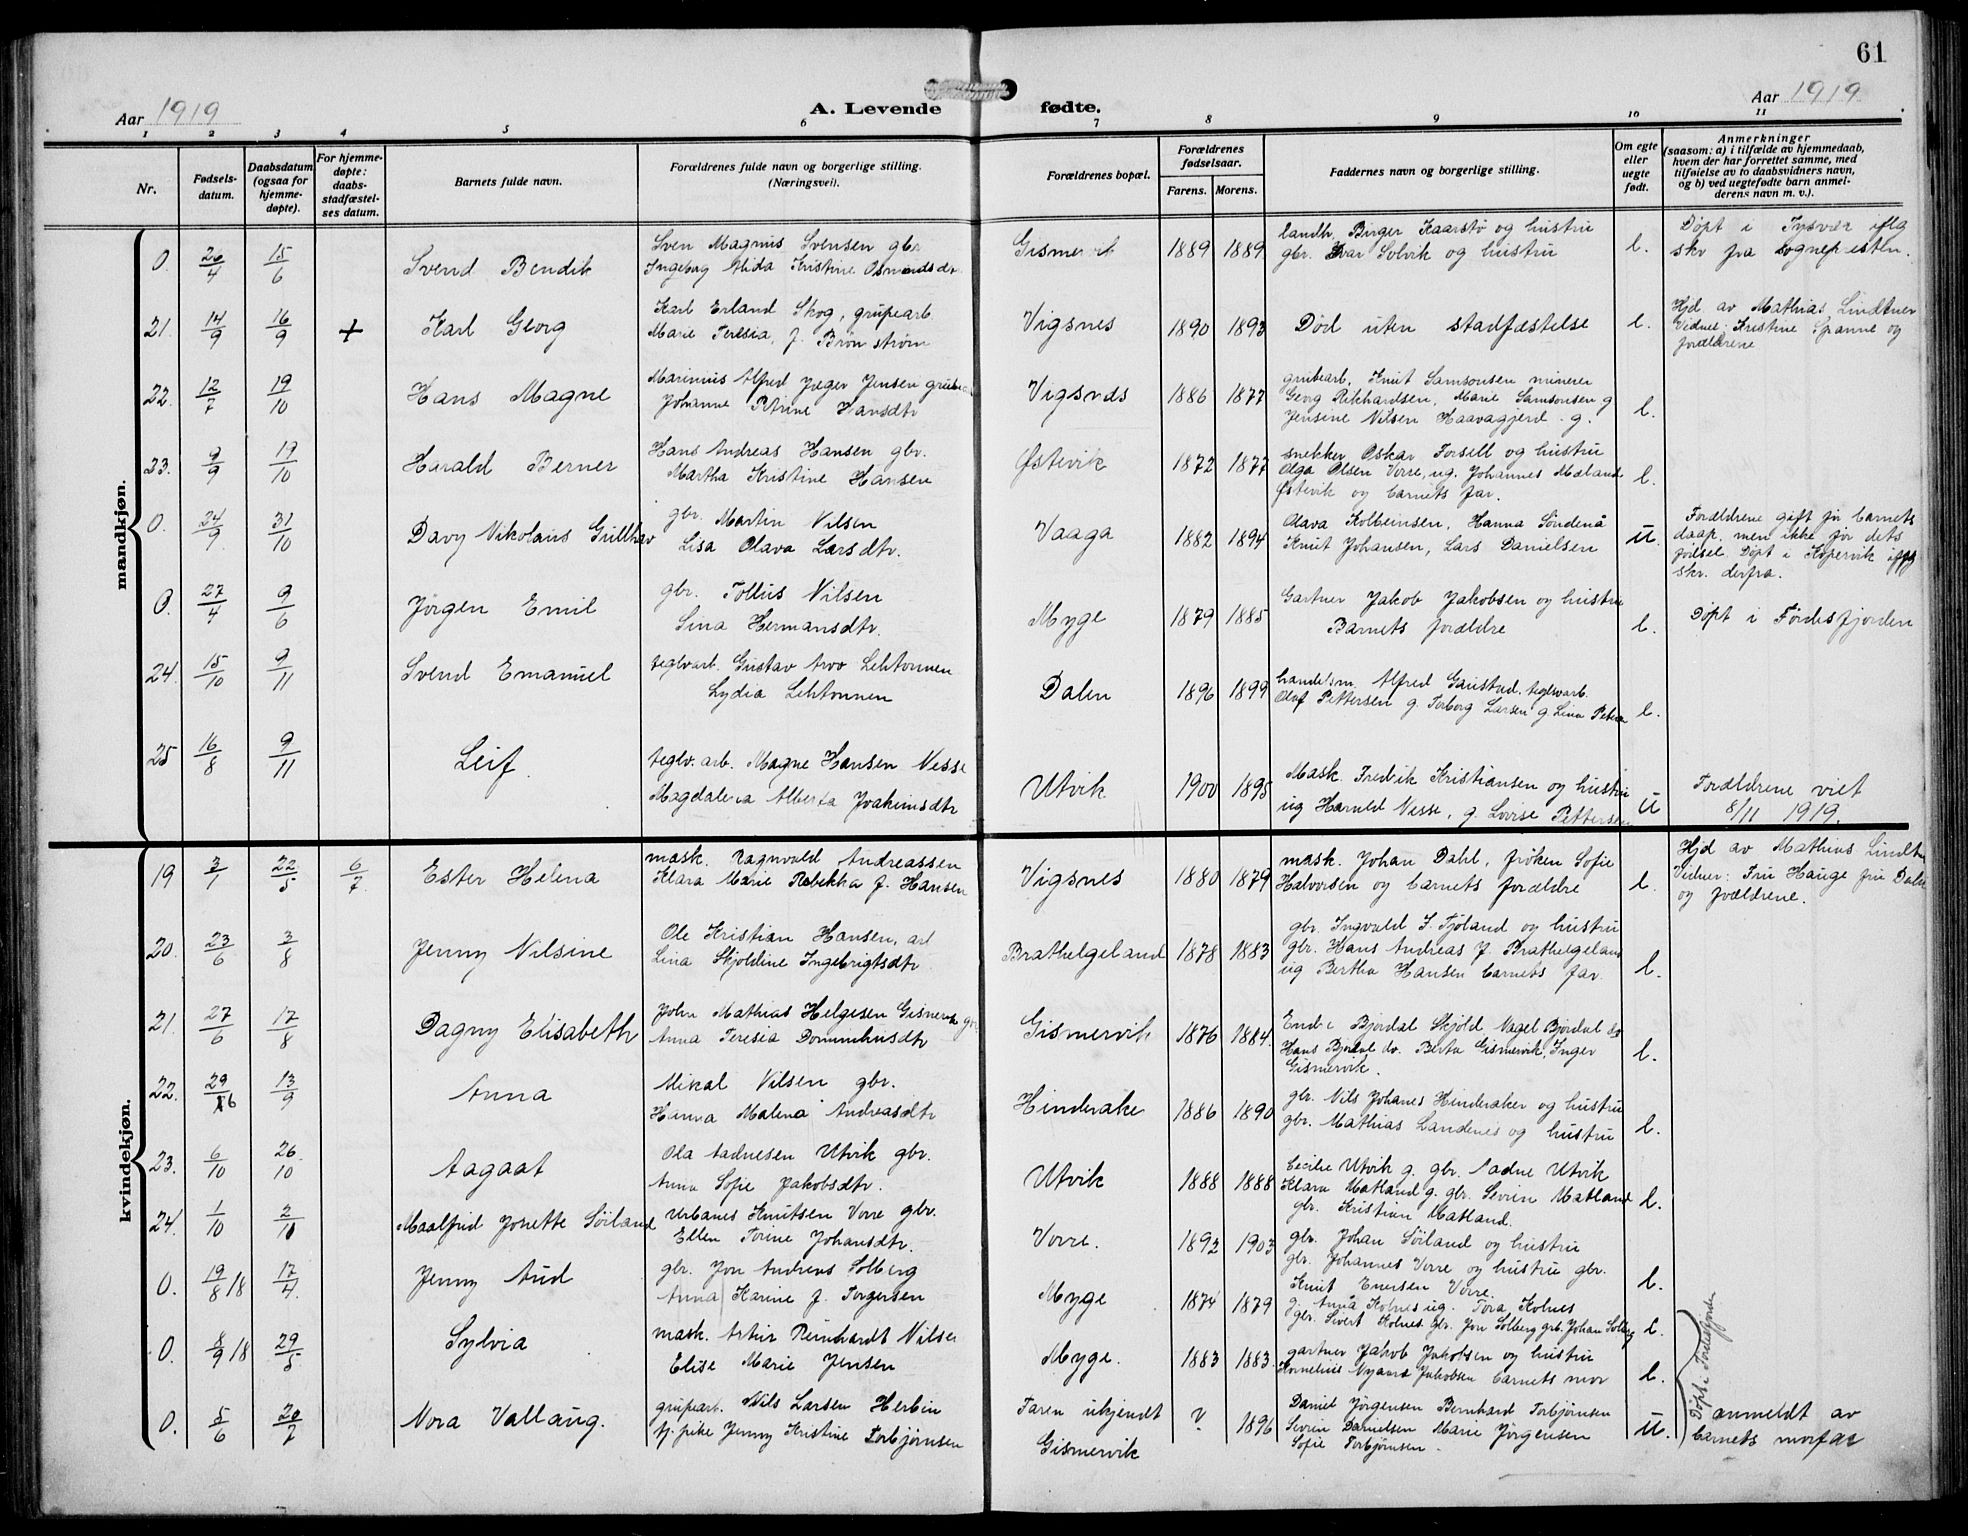 61
Aar 1919
A. Levende fødte.
Aar 1919
1 2 3 4 5 6 7 8 9 10 11
Nr.
Fødsels-
datum.
Daabsdatum
(ogsaa for
hjemme-
døpte).
For hjemme-
døpte:
daabs-
stadfæstel-
ses datum.
Barnets fulde navn.
Forældrenes fulde navn og borgerlige stilling.
(Næringsvei).
Forældrenes bopæl.
Forældrenes
fødselsaar.
Farens. Morens.
Faddernes navn og borgerlige stilling.
Om egte
eller
uegte
født.
Anmerkninger
(saasom: a) i tilfælde av hjemmedaab,
hvem der har forrettet samme, med
tilføielse av to daabsvidners navn,
og b) ved uegtefødte barn anmel-
derens navn m. v.).
mandkjøn.
0. 26/4 15/6 Svend Bendik
Sven Magnus Svensen gbr
Ingeborg Alida Kristine Osmundsdtr
Gismervik 1889 1889
landh. Birger Kaarstø og hustru
gbr. Ivar Solvik og hustru
l.
Døpt i Tysvær iflg
skr fra sognepresten.
21. 14/9 16/9 + Karl Georg
Karl Erland Skog, grupearb
Marie Teresia, f. Brønstrøm
Vigsnes 1890 1893
Død uten stadfæstelse
l.
Hjd. av Mathias Lindtner
Vidner: Kristine Spanne og
forældrene
22. 12/7 19/10 Hans Magne
Marinius Alfred Jæger Jensen
Johanne Petrine Hansdtr
Vigsnes 1886 1877
grubearb. Knut Samsonsen minerer
Georg Rikhardsen, Marie Samsonsen g
Jensine Nilsen Haavagjerd g.
l.
23. 9/9 19/10 Harald Berner
Hans Andreas Hansen gbr.
Martha Kristine Hansen
Østevik 1872 1877
snekker Oskar Forsell og hustru
Olga Olsen Vorre, ug. Johannes Mæland
Østevik og barnets far.
l.
0. 24/9 31/10 Davy Nikolaus Gullhav
gbr. Martin Nilsen
Lisa Olava Larsdtr.
Vaaga 1882 1894
Olava Kolbeinsen, Hanna Søndenå
Knut Johansen, Lars Danielsen
u.
Forældrene gift før barnets
daap, men ikke før dets
fødsel. Døpt i Kopervik iflg
skr. derfra.
0. 27/4 9/6 Jørgen Emil
gbr. Tollus Nilsen
Sina Hermansdtr.
Myge 1879 1885
Gartner Jakob Jakobsen og hustru
Barnets forældre
l.
Døpt i Førdesfjorden
24. 15/10 9/11 Svend Emanuel
teglvarb. Gustav Arvo Lehtonnen
Lydia Lehtonnen
Dalen 1896 1899
handelsm. Alfred Gaustad, teglvarb.
Olaf Pettersen g. Torborg Larsen g. Lina
l.
25 16/8 9/11 Leif.
teglv. arb. Magne Hansen Nesse
Magdalena Alberta Joakimsdtr
Utvik 1900 1895
Mask. Fredrik Kristiansen og hustru
ug Harald Nesse, g. Lovise Pettersen
u
Forældrene viet
8/11 1919.
kvindekjøn.
19 3/1 22/5 6/7. Ester Helena
mask. Ragnvald Andreassen
Klara Marie Rebekka f. Hansen
Vigsnes 1880 1879
mask. Johan Dahl, frøken Sofie
Halvorsen og barnets forældre
l.
Hjd av Mathias Lindtn
Vidner: Fru Hauge fru Dahl
og forældrene.
20. 23/6 3/8 Jenny Nilsine
Ole Kristian Hansen, arb
Lina Skjoldine Ingebrigtsdtr.
Brathelgeland 1878 1883
gbr. Ingvald S. Tjoland og hustru
gbr. Hans Andreas J. Brathelgeland
ug Bertha Hansen barnets far.
l.
21. 27/6 17/8 Dagny Elisabeth
John Mathias Helgesen Gismervik
Anna Teresia Dommhusdtr
Gismervik 1876 1884.
Endre Bjordal Skjold, Nagel Bjordal do
Hans Bjordal do. Berta Gismervik, Inger
Gismervik.
l.
22. 29/6 13/9 Anna
Mikal Nilsen gbr.
Hanna Malena Andreasdtr
Hinderake 1886 1890
gbr. Nils Johanes Hinderaker og hustru
gbr. Mathias Landenes og hustru
l.
23. 6/10 26/10. Aagaat
Ola Aadnesen Utvik gbr.
Anna Sofie Jakobsdtr.
Utvik 1888 1888
Cecilie Utvik g. gbr. Aadne Utvik
Klara Matland g. gbr. Sevrin Matland
gbr. Kristian Matland.
l.
24. 1/10 2/11 Maalfrid Jonette Søiland
Urbanes Knutsen Vorre gbr.
Ellen Torine Johansdtr.
Vorre. 1892 1903
gbr. Johan Søiland og hustru
gbr. Johannes Vorre og hustru gbr.
Knut Enersen Vorre.
l.
0. 19/8 18 17/4. Jenny Aud
gbr. Jon Andreas Solberg
Anna Karine f. Torgersen
Myge 1874 1879
g. Anna Kolnes ug. Tora Kolnes
gbr. Sivert Kolnes gbr. Jon Solberg gbr. Johan Solberg
l.
0. 8/9 18 29/5 Sylvia
mask. Artur Reinhardt Nilsen
Elise Marie Jensen
Myge. 1883 1883.
gartner Jakob Jakobsen og hustru
Kornelius Nygaard Jakobsen barnets mor
l.
0. 5/6 20/7 Nora Vallaug.
grupearb. Nils Larsen Herbin
tj. pike Jenny Kristine Torbjørnsen
Faren ukjendt
Gismervik
? 1896
Daniel Jørgensen Bernhard Torbjørnsen
Sevrin Danielsen Marie Jørgensen
Sofie Torbjørnsen.
u.
Døpt i Førdesfjorden
anmeldt av
barnets morfar